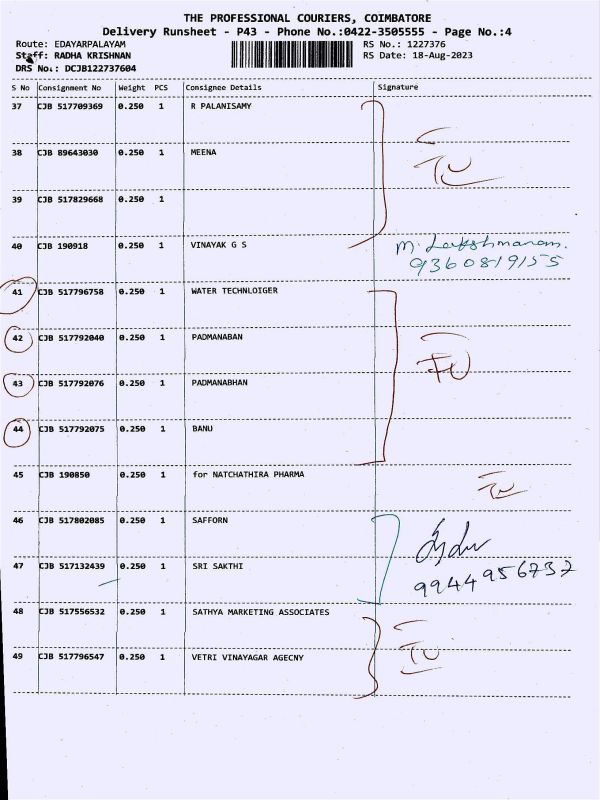 THE PROFESSIONAL COURIERS, COIMBATORE
Delivery Runsheet - P43 - Phone No.:0422-3505555 - Page No.:4
Route: EDAYARPALAYAM RS No.: 1227376
Staff: RADHA KRISHNAN RS Date: 18-Aug-2023
DRS No.: DCJB122737604
S No Consignment No Weight PCS Consignee Details Signature
37 CJB 517709369 0.250 1 R PALANISAMY
38 CJB 89643030 0.250 1 MEENA
39 CJB 517829668 0.250 1
40 CJB 190918 0.250 1 VINAYAK G S M. Lakshmanan.
9360819155
41 CJB 517796758 0.250 1 WATER TECHNLOIGER
42 CJB 517792040 0.250 1 PADMANABAN
43 CJB 517792076 0.250 1 PADMANABHAN
44 CJB 517792075 0.250 1 BANU
45 CJB 190850 0.250 1 for NATCHATHIRA PHARMA
46 CJB 517802085 0.250 1 SAFFORN
47 CJB 517132439 0.250 1 SRI SAKTHI
9944956737
48 CJB 517556532 0.250 1 SATHYA MARKETING ASSOCIATES
49 CJB 517796547 0.250 1 VETRI VINAYAGAR AGECNY